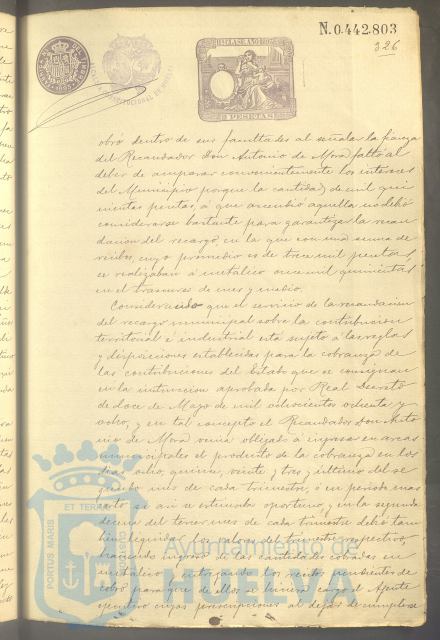 N.0.442.803
326
11ª CLASE. AÑO 1895
2 PESETAS
obró dentro de sus facultades al señalar la fianza
del Recaudador Don Antonio de Mora faltó al
deber de amparar convenientemente los intereses
del Municipio porque la cantidad de mil qui
nientas pesetas, á que ascendió aquella no debió
considerarse bastante para garantizar la recau
dacion del recargo, en la que con una suma de
recibos, cuyo promedio es de trece mil pesetas,
se realizaban á metálico once mil quinientas
en el trascurso de mes y medio.
Considerando que el servicio de la recaudacion
del recargo municipal sobre la contribucion
territorial é industrial está sujeto á las reglas
y disposiciones establecidas para la cobranza de
las contribuciones del Estado que se consignan
en la instruccion aprobada por Real Decreto
de doce de Mayo de mil ochocientos ochenta y
ocho, y en tal concepto el Recaudador Don Anto
nio de Mora venia obligado á ingresar en arcas
municipales el producto de la cobranza en los
dias ocho, quince, veinte y tres, y último del se
gundo mes de cada trimestre, ó en periodo mas
corto si asi se estimaba oportuno, y en la segunda
decena del tercer mes de cada trimestre debió tam
bien liquidar los valores del trimestre respectivo,
haciendo ingreso de las cantidades cobradas en
metálico y entregando los recibos pendientes de
cobro para que de ellos se hiciera cargo el Agente
ejecutivo cuyas prescripciones al dejar de cumplirse
PORTUS MARIS
ET TERRAE
CUSTODIA
Ayuntamiento de
HUELVA